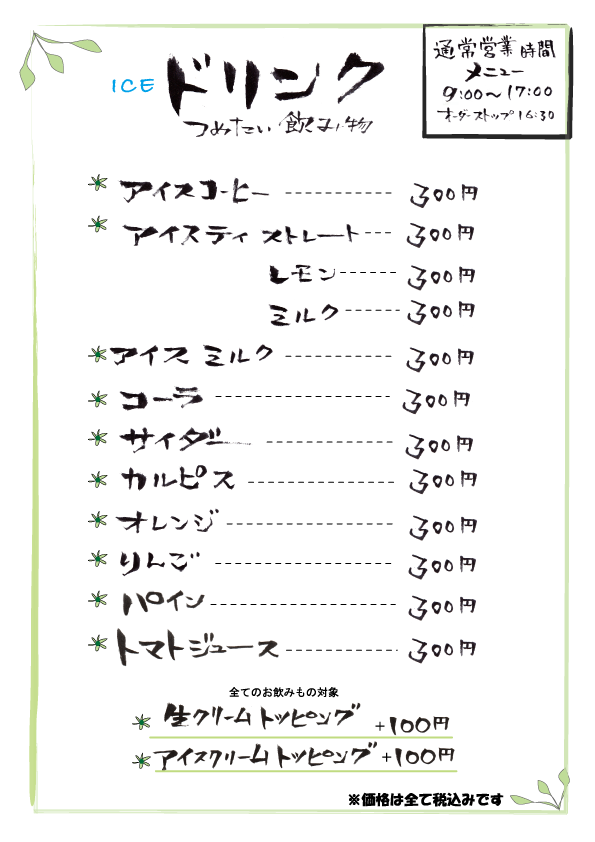 ICE ドリンク
つめたい飲み物
通常営業時間
メニュー
9:00〜17:00
オーダーストップ16:30
アイスコーヒー 300円
アイスティ ストレート 300円
レモン 300円
ミルク 300円
アイス ミルク 300円
コーラ 300円
サイダー 300円
カルピス 300円
オレンジ 300円
りんご 300円
パイン 300円
トマトジュース 300円
全てのお飲みもの対象
生クリームトッピング +100円
アイスクリームトッピング +100円
※価格は全て税込みです